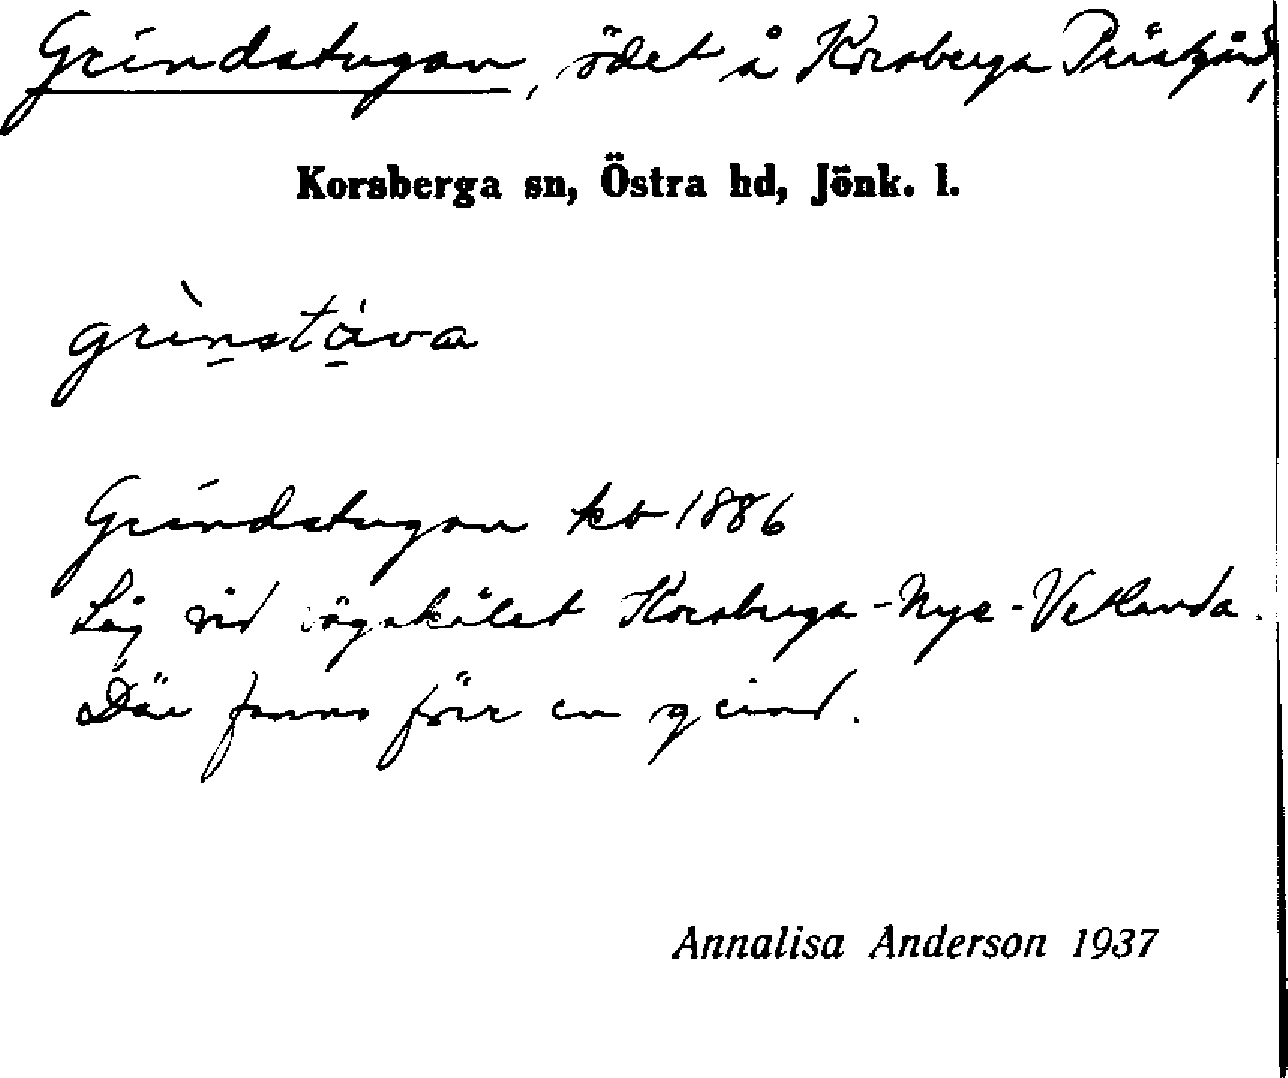 Grindstugan, ödet å Korsberga Prästgård,
Korsberga sn, Östra hd, Jönk. l.
grinstáva
Grindstugan kb 1886
Låg vid vägskälet Korsberga-Nye-Vetlanda.
Där fanns förr en grind.
Annalisa Anderson 1937